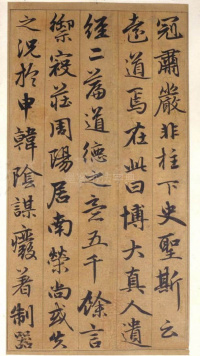 冠肅嚴非柱下史聖斯云
遠道焉在此曰博大真人遺
經二篇道德之言五千餘言
禦寇莊周陽居南榮尚或失
之況於申韓陰謀癈著制器